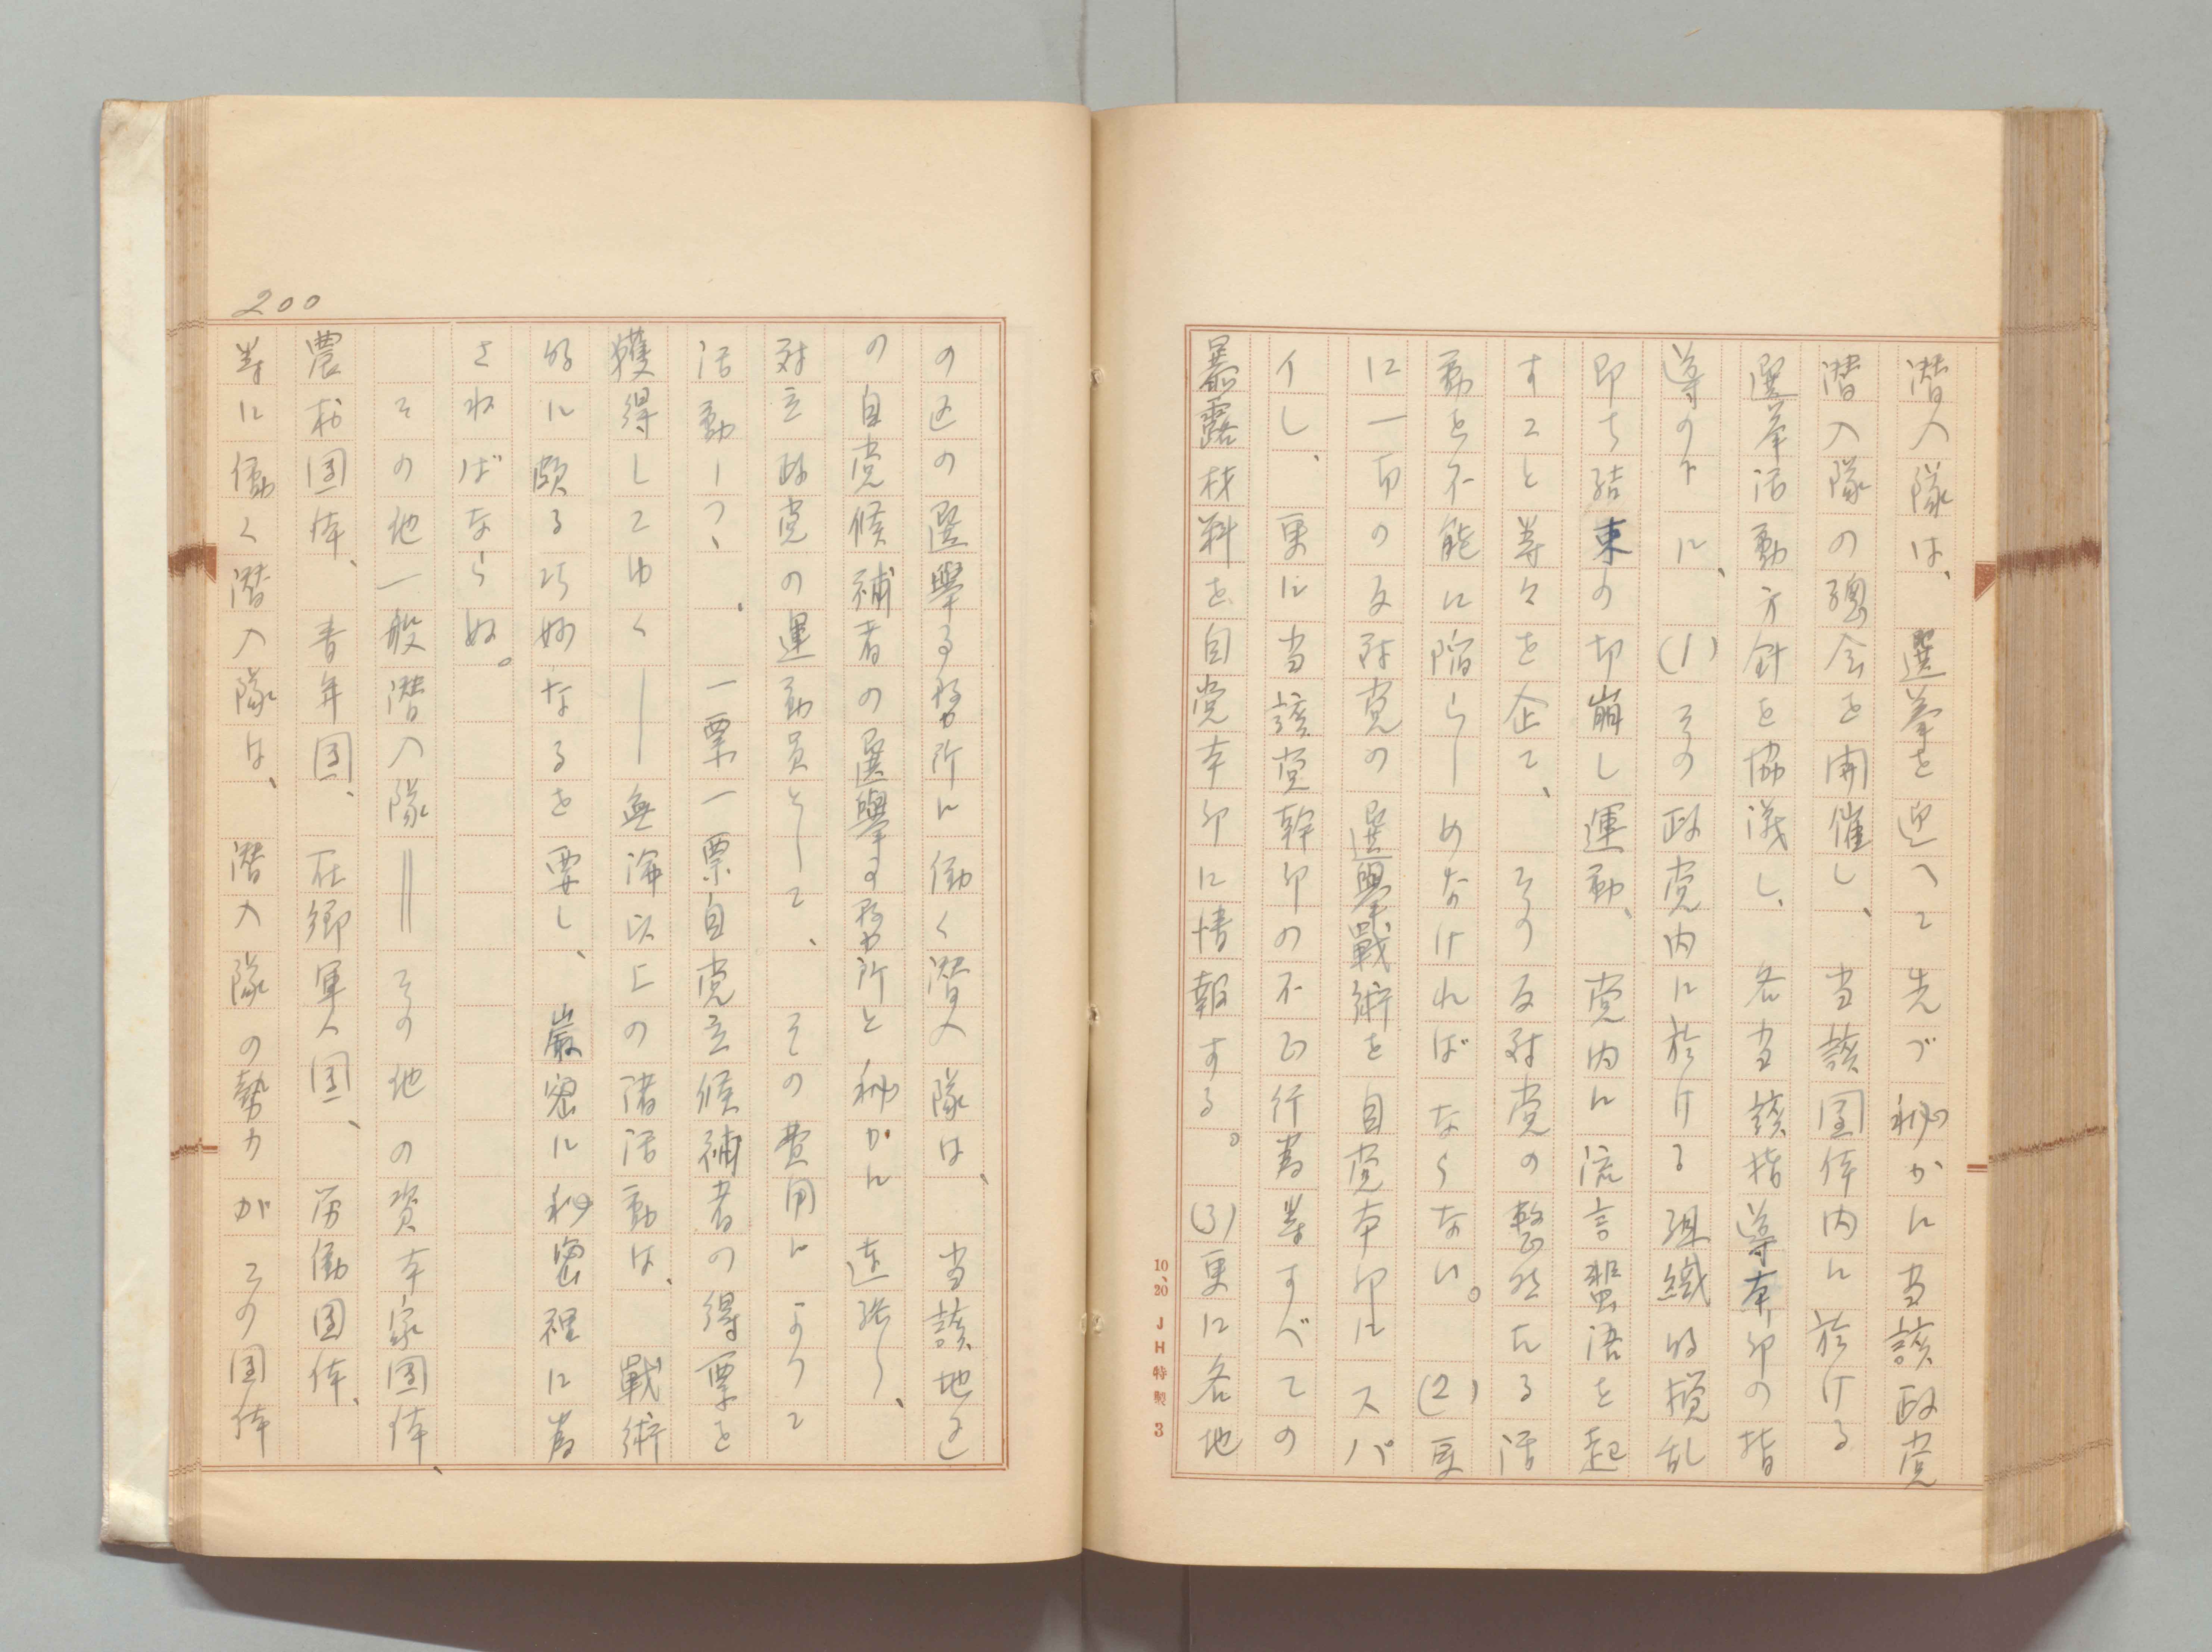 潜入隊は、選挙を迎へて先づ秘かに当該政党
潜入隊の総会を開催し、当該団体内に於ける
選挙活動方針を協議し、各当該指導本部の指
導の下に、(1)その政党内に於ける組織的撹乱
即ち結束の切崩し運動、党内に流言蜚語を起
すこと等々を企て、その反対党の整然たる活
動を不能に陥らしめなければならない。(2)更
に一切の反対党の選擧戰術を自党本部にスパ
イし、更に当該党幹部の不正行為等すべての
暴露材料を自党本部に情報する。(3)更に各地
10、20 JH特製 3
200
の区の選擧事務所に働く潜入隊は、当該地区
の自党候補者の選擧事務所と秘かに連絡し、
対立政党の運動員として、その費用によって
活動しつゝ、一票一票自党立候補者の得票を
獲得してゆく——無論以上の諸活動は、戰術
的に頗る巧妙なるを要し、厳密に秘密裡に為
されねばならぬ。
その他一般潜入隊＝＝その他の資本家団体、
農村団体、青年団、在郷軍人団、労働団体、
等に働く潜入隊は、潜入隊の勢力がその団体